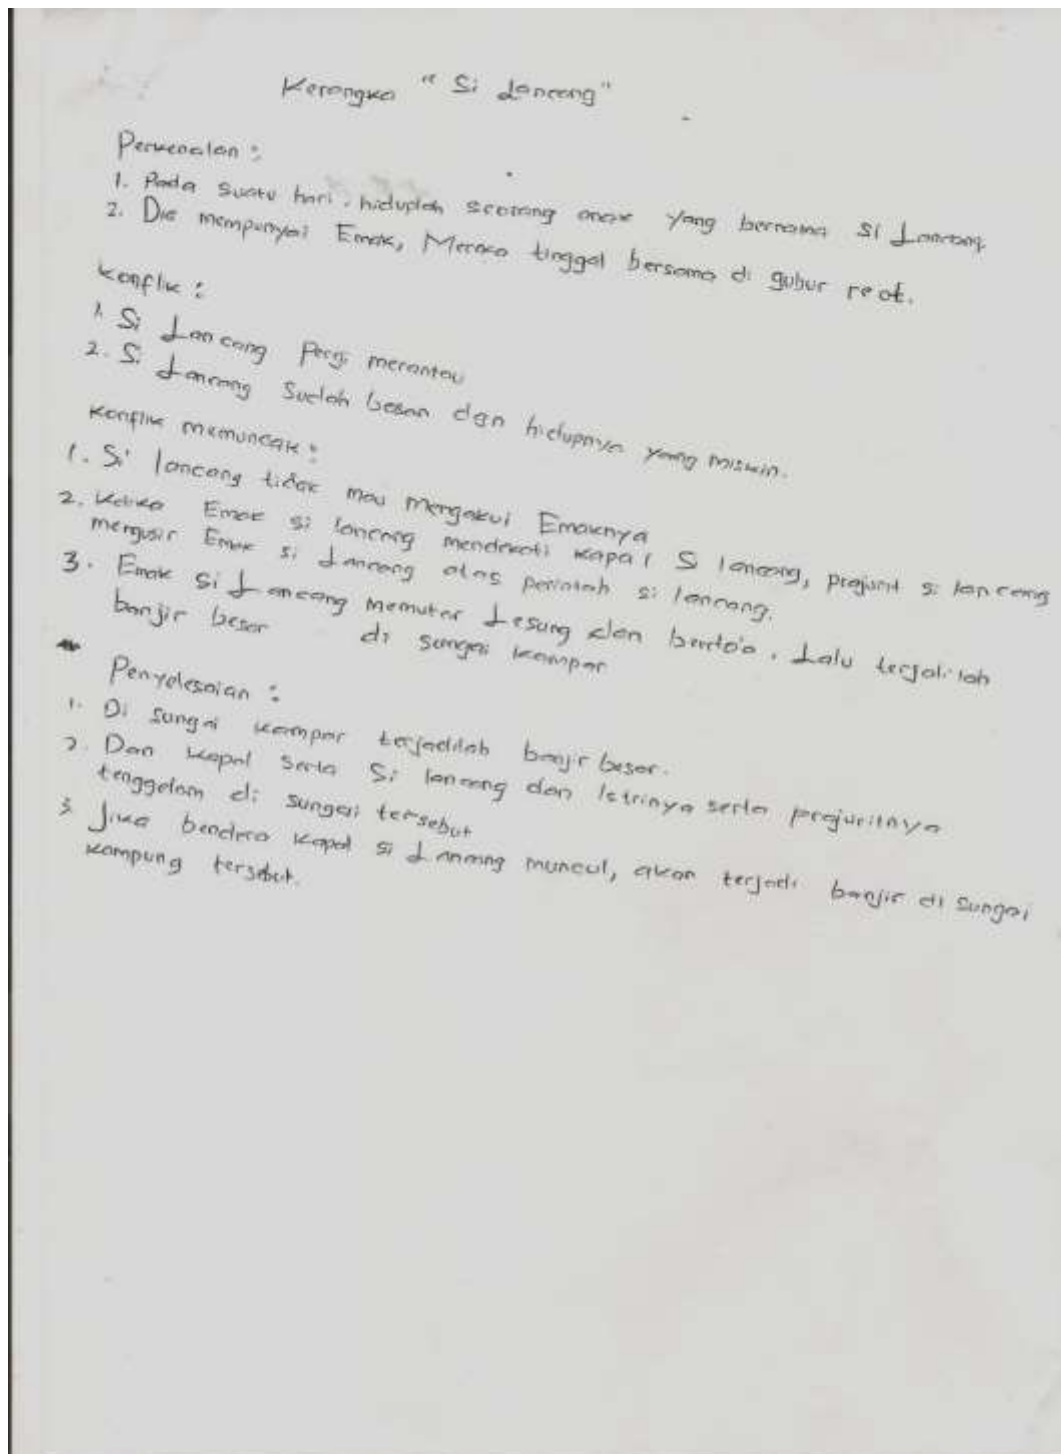 Kerangka "Si Lancang"
Perkenalan :
1. Pada suatu hari, hiduplah seorang anak yang bernama Si Lancang
2. Dia mempunyai Emak, Mereka tinggal bersama di gubur reot.
Konflik :
1. Si Lancang Pergi merantau
2. Si Lancang Sudah besar dan hidupnya yang miskin.
Konflik memuncak :
1. Si lancang tidak mau mengakui Emaknya
2. Ketika Emak si lancang mendekati kapal Si lancang, prajurit si lancang
mengusir Emak si Lancang atas perintah si lancang.
3. Emak si Lancang memutar Lesung dan berdo'a. Lalu terjadilah
banjir besar di sungai kampar
Penyelesaian :
1. Di sungai kampar terjadilah banjir besar.
2. Dan kapal serta Si lancang dan Istrinya serta prajuritnya
tenggelam di sungai tersebut
3. Jika bendera kapal si Lancang muncul, akan terjadi banjir di sungai
kampung tersebut.